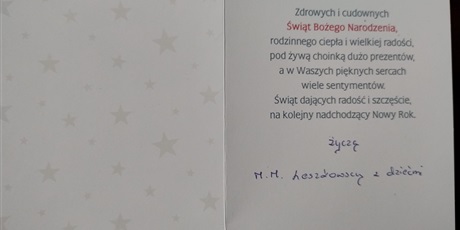 Zdrowych i cudownych
Świąt Bożego Narodzenia,
rodzinnego ciepła i wielkiej radości,
pod żywą choinką dużo prezentów,
a w Waszych pięknych sercach
wiele sentymentów.
Świąt dających radość i szczęście,
na kolejny nadchodzący Nowy Rok.
życzą
M.M. z dziećmi